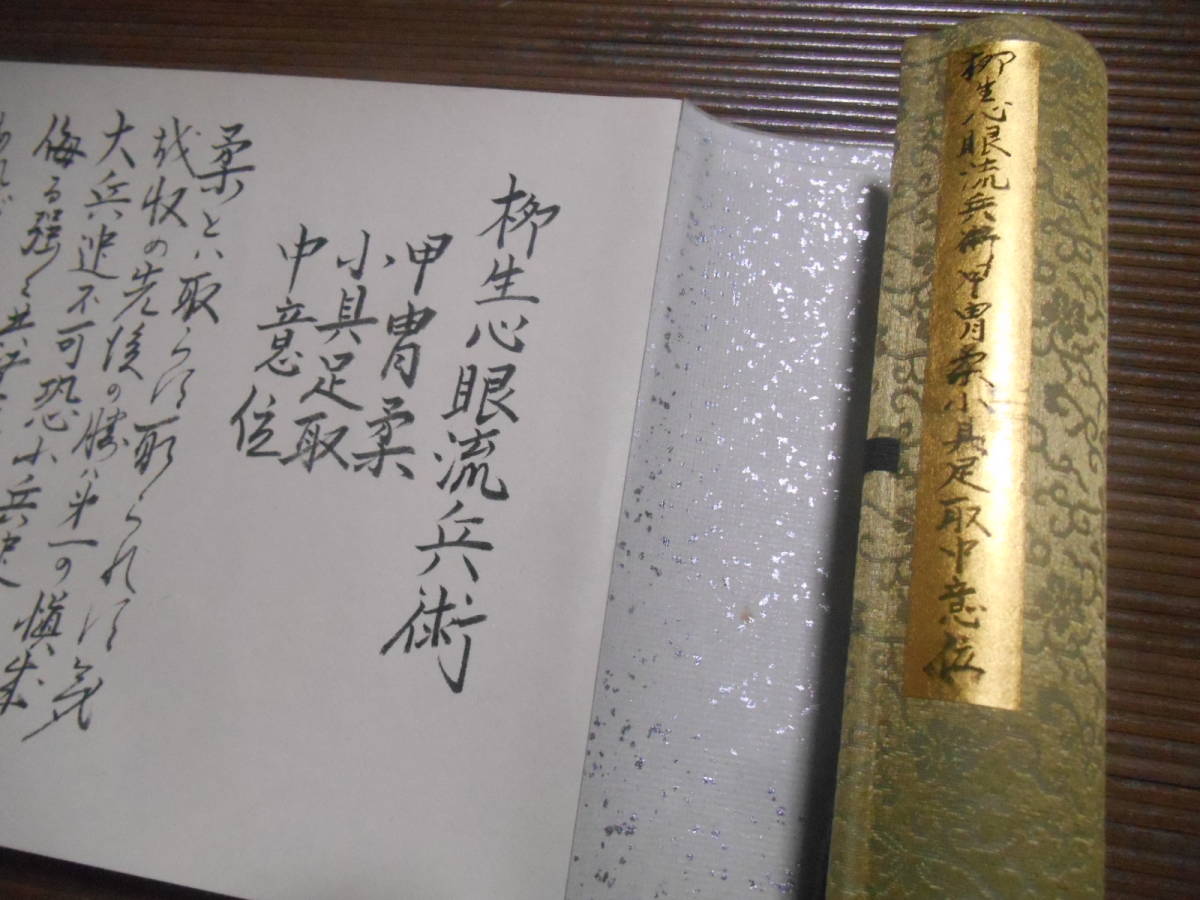 柳生心眼流兵術甲冑柔小具足取中意位
柳生心眼流兵術
甲冑柔
小具足取
中意位
柔とハ取らは取られは気
哉収の先後の勝ハ第一の慎成
大兵迚不可恐小兵迚
侮る強く